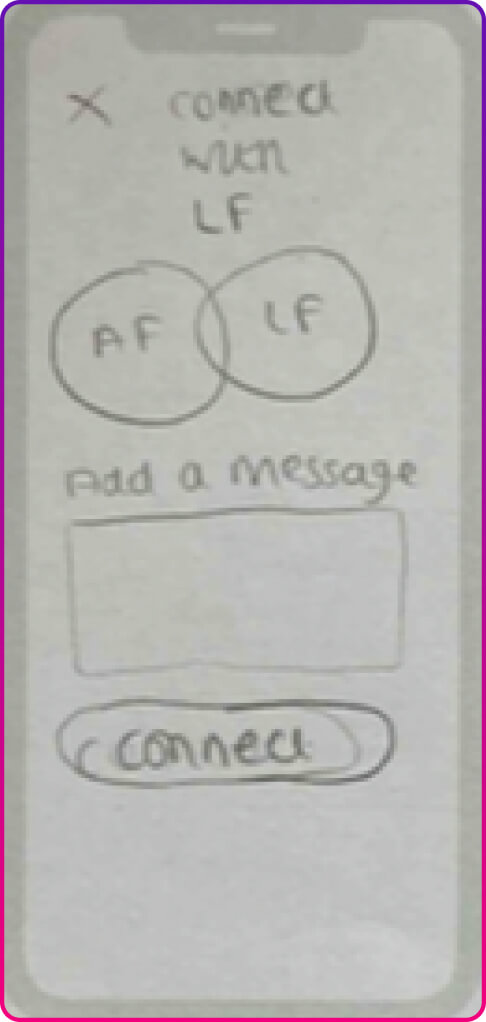 X connect
with
LF
AF LF
Add a message
connect